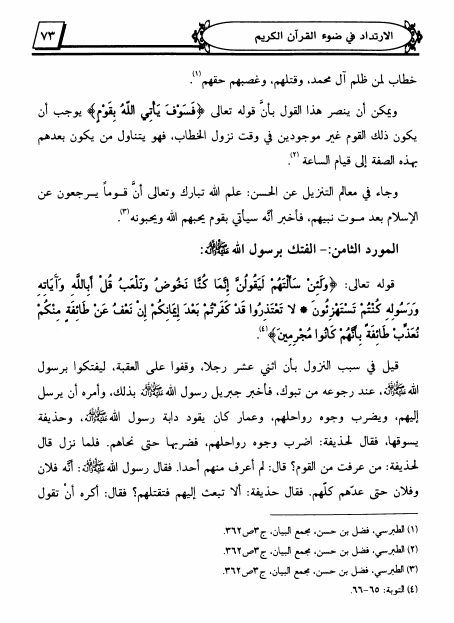 الارتداد في ضوء القرآن الكريم
٧٣
خطاب لمن ظلم آل محمد، وقتلهم، وغصبهم حقهم(١).
ويمكن أن ينصر هذا القول بأنَّ قوله تعالى ﴿فَسَوْفَ يَأْتِي اللَّهُ بِقَوْمٍ﴾ يوجب أن
يكون ذلك القوم غير موجودين في وقت نزول الخطاب، فهو يتناول من يكون بعدهم
بهذه الصفة إلى قيام الساعة (٢).
وجاء في معالم التنزيل عن الحسن: علم الله تبارك وتعالى أنَّ قوماً يرجعون عن
الإسلام بعد موت نبيهم، فأخبر أنَّه سيأتي بقوم يحبهم الله ويحبونه(٣).
المورد الثامن:- الفتك برسول الله ﷺ:
قوله تعالى: ﴿وَلَئِنْ سَأَلْتَهُمْ لَيَقُولُنَّ إِنَّمَا كُنَّا نَخُوضُ وَنَلْعَبُ قُلْ أَبِاللَّهِ وَآيَاتِهِ
وَرَسُولِهِ كُنْتُمْ تَسْتَهْزِئُونَ * لا تَعْتَذِرُوا قَدْ كَفَرْتُمْ بَعْدَ إِيمَانِكُمْ إِنْ نَعْفُ عَنْ طَائِفَةٍ مِنْكُمْ
نُعَذِّبْ طَائِفَةً بِأَنَّهُمْ كَانُوا مُجْرِمِينَ﴾(٤).
قيل في سبب النزول بأن اثني عشر رجلا، وقفوا على العقبة، ليفتكوا برسول
الله ﷺ، عند رجوعه من تبوك، فأخبر جبريل رسول الله ﷺ بذلك، وأمره أن يرسل
إليهم، ويضرب وجوه رواحلهم، وعمار كان يقود دابة رسول الله ﷺ، وحذيفة
يسوقها، فقال لحذيفة: اضرب وجوه رواحلهم، فضربها حتى نحاهم. فلما نزل قال
لحذيفة: من عرفت من القوم؟ قال: لم أعرف منهم أحدا. فقال رسول الله ﷺ: أنَّه فلان
وفلان حتى عدّهم كلّهم. فقال حذيفة: ألا تبعث إليهم فتقتلهم؟ فقال: أكره أنْ تقول
(١) الطبرسي، فضل بن حسن، مجمع البيان، ج٣ص٣٦٢.
(٢) الطبرسي، فضل بن حسن، مجمع البيان، ج٣ص٣٦٢.
(٣) الطبرسي، فضل بن حسن، مجمع البيان، ج٣ص٣٦٢.
(٤) التوبة: ٦٥-٦٦.